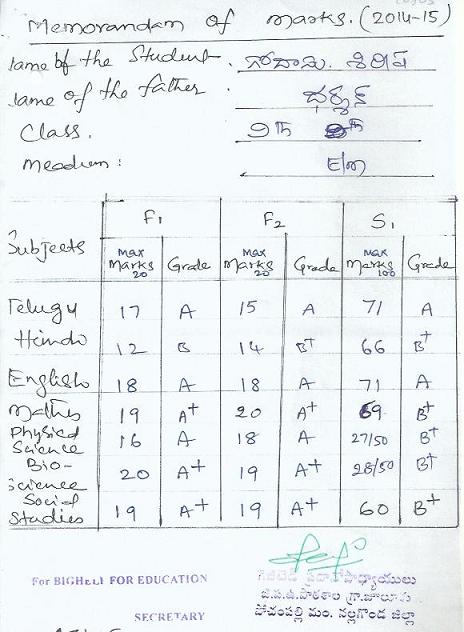 Memorandam of marks. (2014-15)
ame of the Student. గోదాసు. శిరీష
ame of the father.
Class. 9th
Meadium: E/m
F1 F2 S1
Subjects Max Marks 20 Grade Max Marks 20 Grade Max Marks 100 Grade
Telugu 17 A 15 A 71 A
Hindi 12 B 14 B+ 66 B+
English 18 A 18 A 71 A
Maths 19 A+ 20 A+ 69 B+
Physical Science 16 A 18 A 27/50 B+
Bio-Science 20 A+ 19 A+ 28/50 B+
Social Studies 19 A+ 19 A+ 60 B+
For BIGHELP FOR EDUCATION
SECRETARY
గెజిటెడ్ ప్రధానోపాధ్యాయులు
జి.ప.ఉ.పాఠశాల గ్రా.జూలూరు
పోచంపల్లి మం. నల్లగొండ జిల్లా